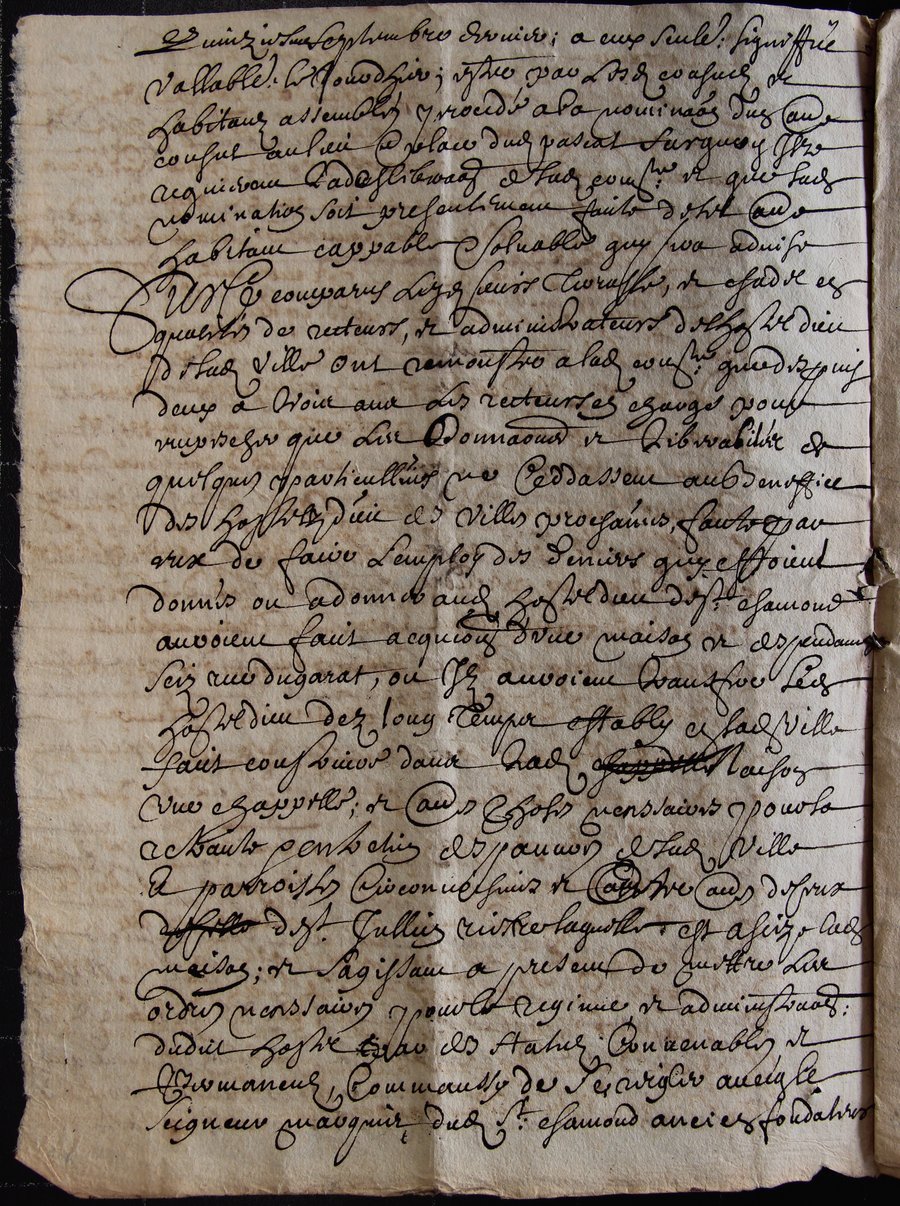 septembre dernier, a eux seulem.t signiffié
vallablem.t ; estre par lesd consulz et
habitans assemblés proceddé a la nomina~on dud autre
consul au lieu et place dud pascal
requierant ladeslibera~on de lad cons.re et que lad
nomination soit presentement faite de tel autre
habitant cappable et soluable quy sera advisé
Surce comparus lesd sieurs et en
qualités de recteurs, et administrateurs delhostel dieu
delad ville ont remonstré a lad cons.re que despuis
deux a trois ans les recteurs en charge pour
empescher que les et liberalités de
quelques particulliers ne ceddassent au beneffice
des hostelz dieu des villes prochaines, faute par
eux de faire lemploy des deniers quy estoient
donnés ou a donner aud hostel dieu de s.t chamond
auroient fait acquis~on dune maison et despendances
size rue dugarat, ou ilz auroient transferé led
hostel dieu dez long temps estably en lad ville
fait construire dans lad maison
une chappelle, et autres choses necessaires pour la
retraite et des pauvres de lad ville
et parroisses circonvoisines et entre autres de ceux
de s.t Jullien riere laquelle est asize lad
maison ; et sagissant a present de mettre les
ordres necessaires pour le regime et administra~on
dudit hostel par des statuz convenables et
permanens, comm'aussy de
seigneur marquis dud s.t chamond ancien fondateur